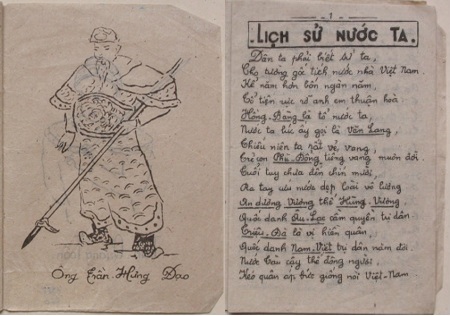 Ông Trần Hưng Đạo
- 1 -
LỊCH SỬ NƯỚC TA.
Dân ta phải biết sử ta,
Cho tường gốc tích nước nhà Việt Nam
Kể năm hơn bốn ngàn năm,
Tổ tiên rực rỡ anh em thuận hoà
Hồng-Bàng là tổ nước ta,
Nước ta lúc ấy gọi là Văn Lang,
Thiếu niên ta rất vẻ vang,
Trẻ con Phù-Đổng tiếng vang muôn đời.
Tuổi tuy chưa đến chín mười,
Ra tay cứu nước dẹp loài vô lương
An dương Vương thế Hùng-Vương
Quốc danh Âu-Lạc cầm quyền trị dân
Triệu-Đà là vị hiền quân,
Quốc danh Nam-Việt trị dân năm đời.
Nước Tàu cậy thế đông người
Kéo quân áp bức giống nòi Việt-Nam.